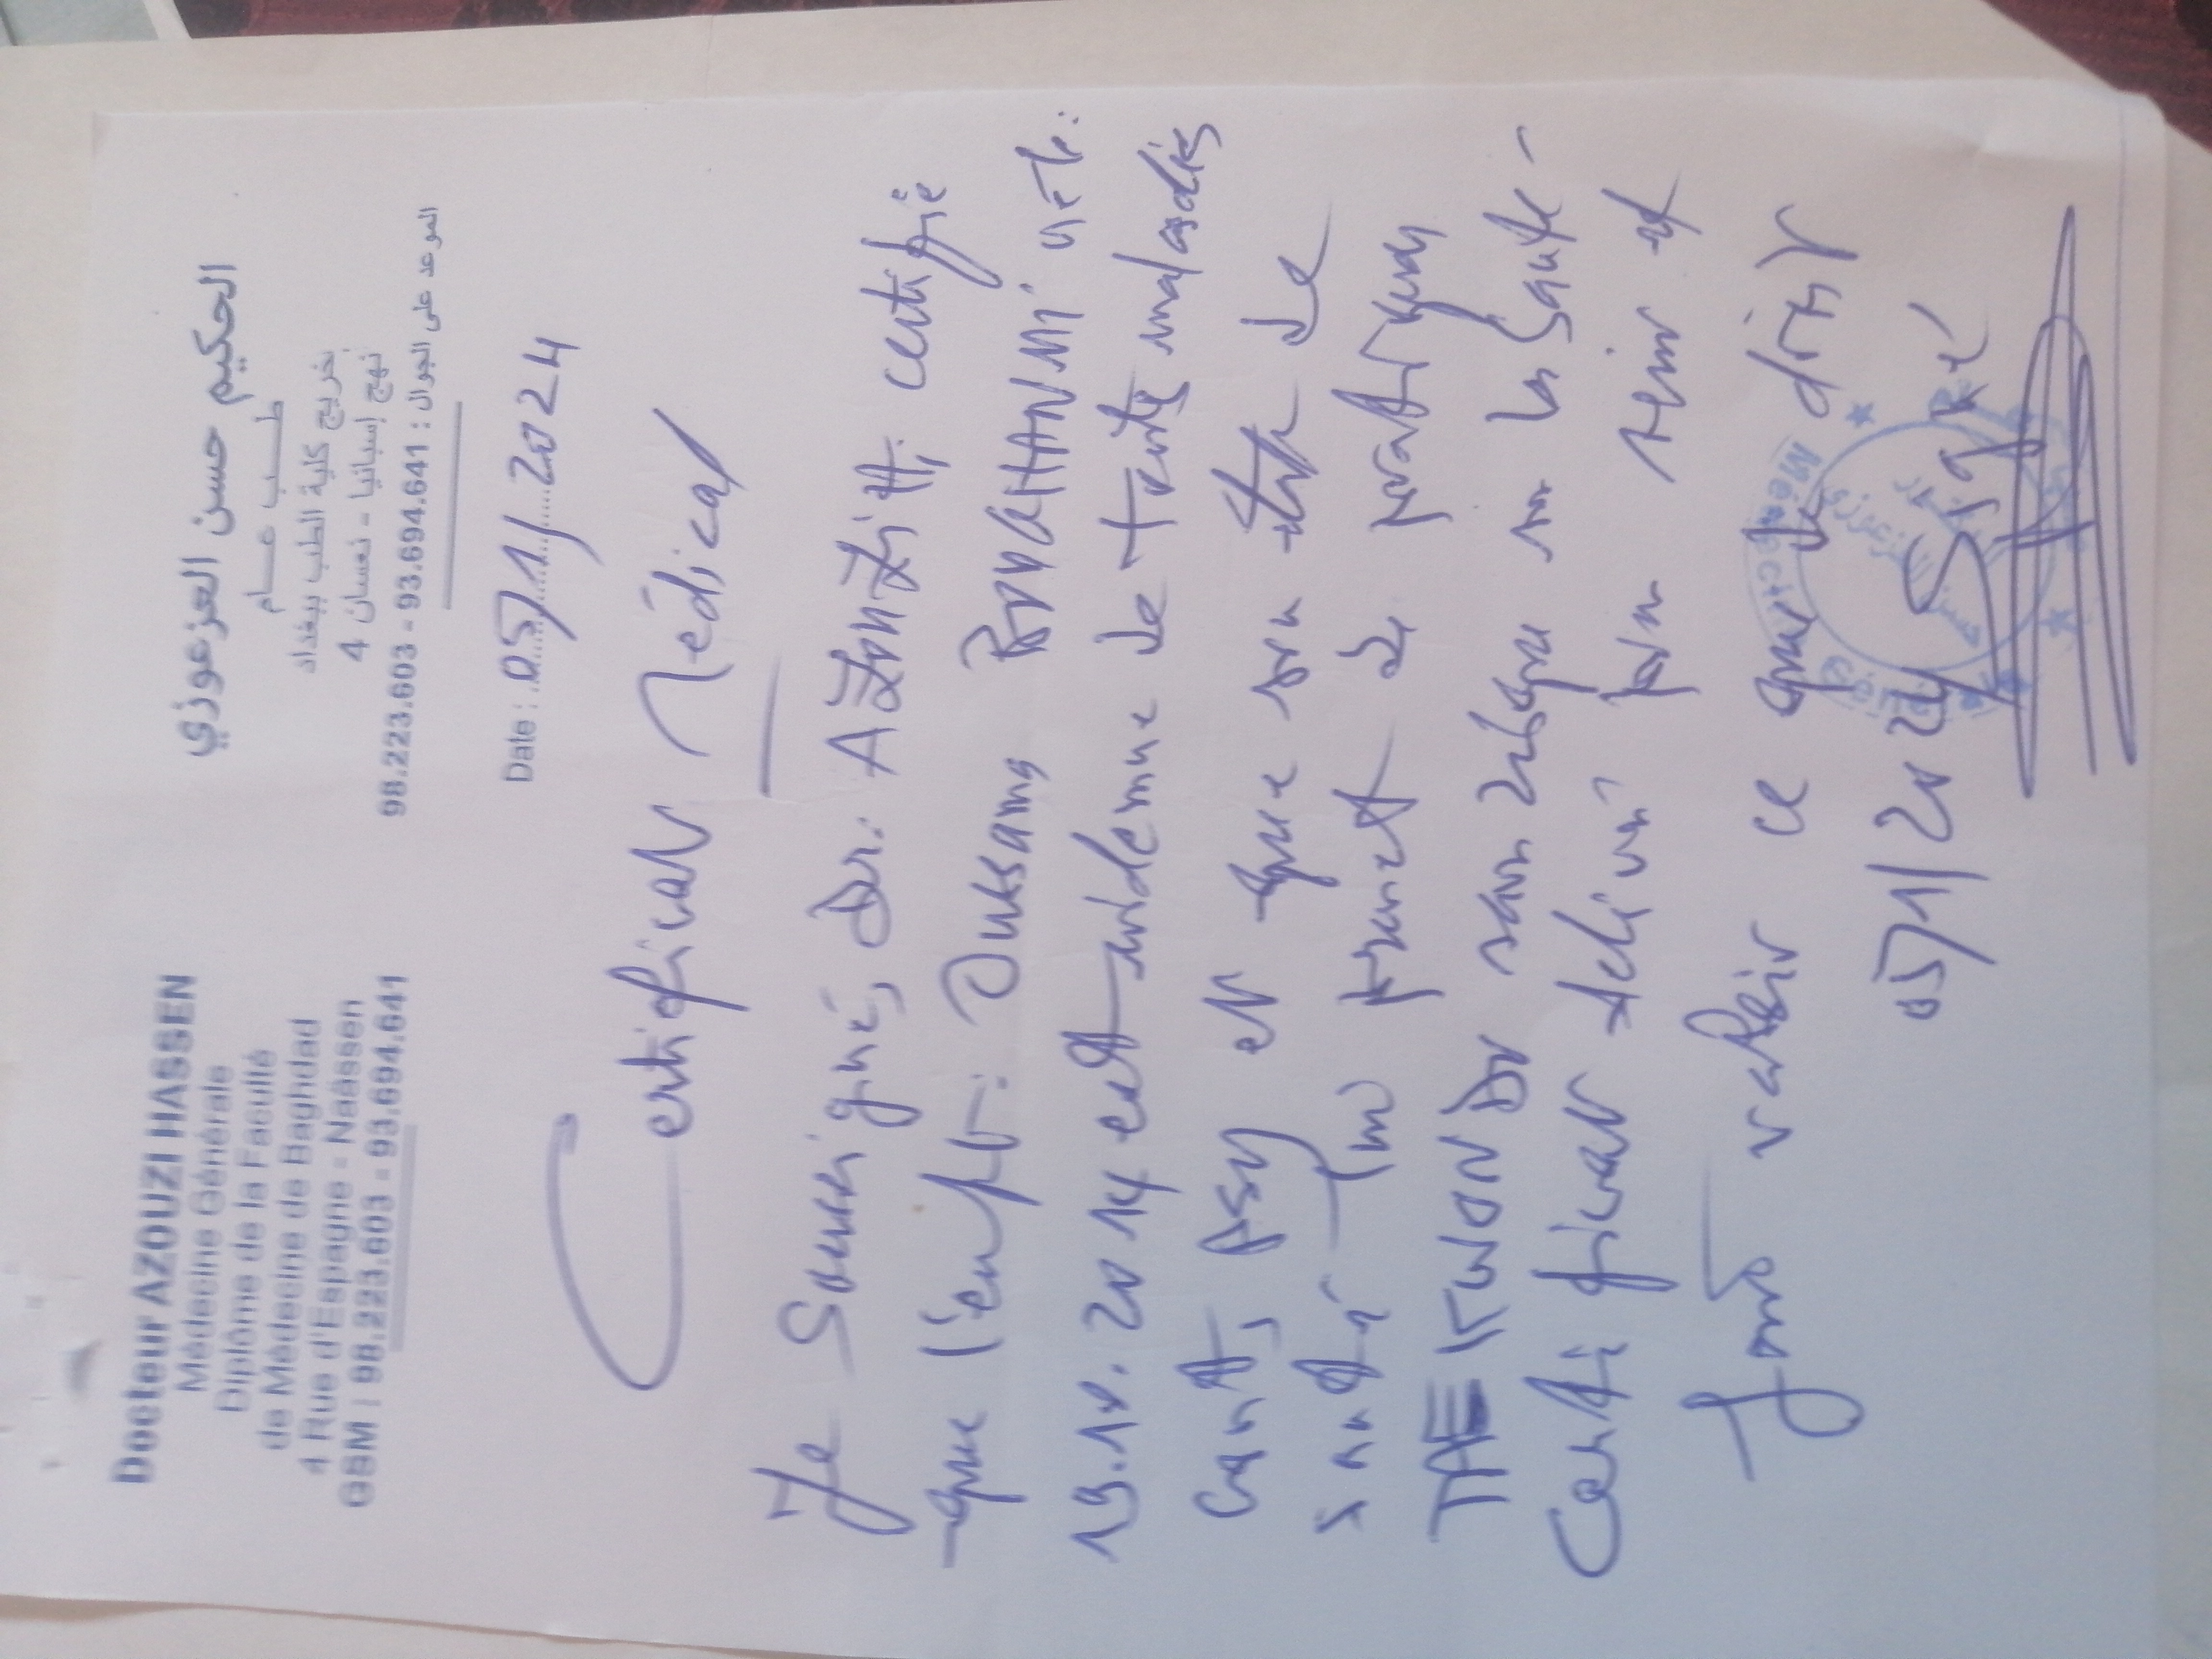 Docteur AZOUZI HASSEN
Médecine Générale
Diplôme de la Faculté
de Médecine de Baghdad
4 Rue d'Espagne - Naâssen
GSM : 98.223.603 - 93.694.641
الحكيم حسن العزعوزي
طـــب عـــام
خريج كلية الطب ببغداد
4 نهج إسبانيا - نعسان
الموعد على الجوال : 93.694.641 - 98.223.603
Date : 05/1/2024
Certificat Médical
Je Soussigné, Dr. AZOUZI H, certifie
que l'enfant : né le :
19.10.2014 est indemne de toute maladies
Cont, psy et que son état de
santé lui permet de pratiquer
TAEKWONDO sans risque sur la Santé -
Certificat délivré pour servir et
faire valoir ce que de droit
05/1/2024 Signé